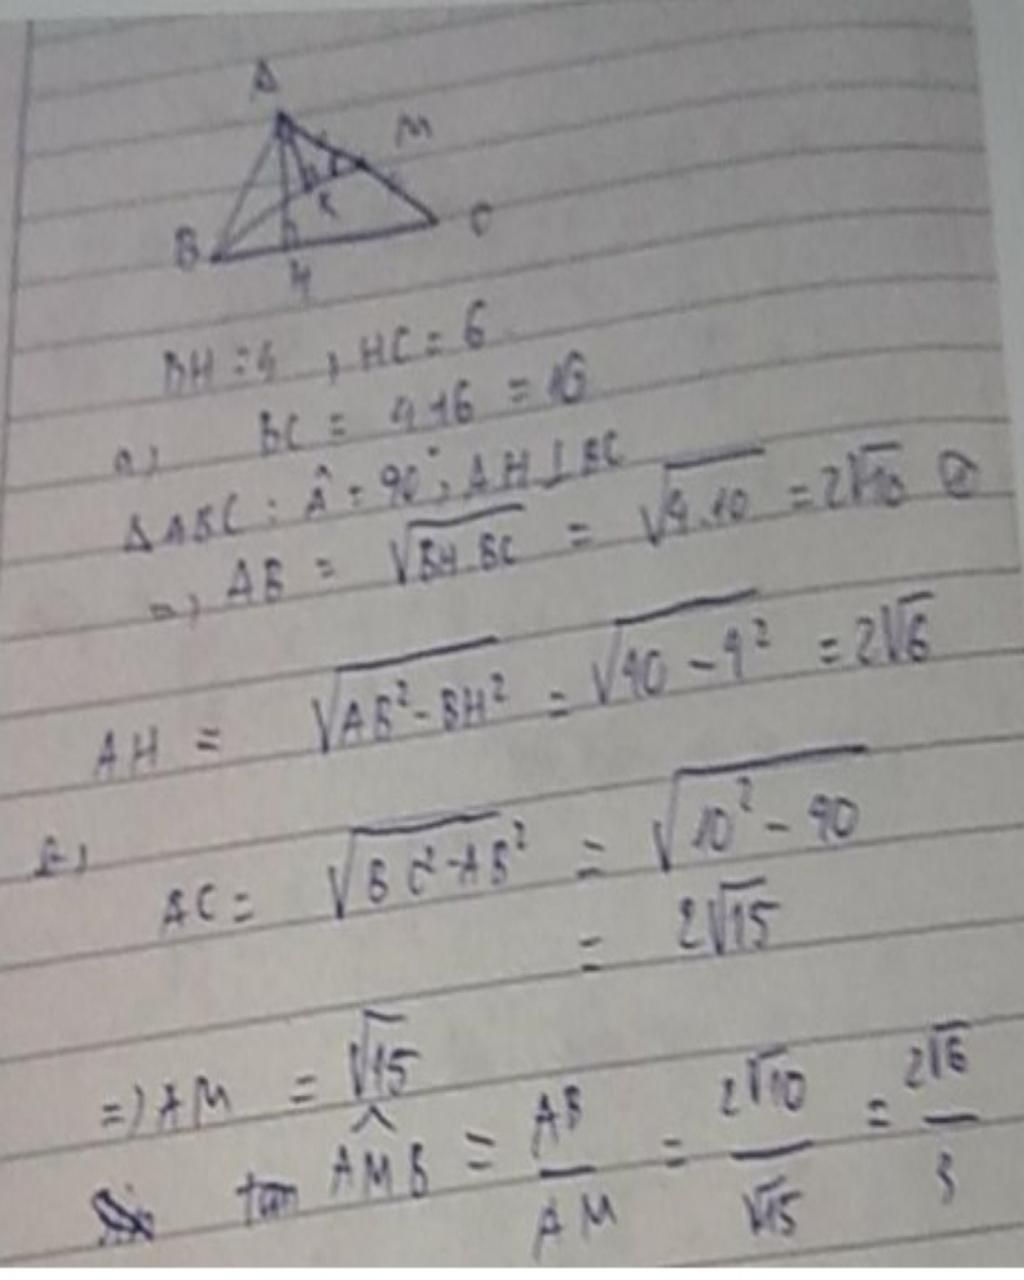 A
M
K
B
C
H
BH = 4 , HC = 6
a, BC = 4+6 = 10
ΔABC : Â = 90° , AH ⊥ BC
=, AB = √BH.BC = √4.10 = 2√10
AH = √AB² - BH² = √40 - 4² = 2√6
b, AC = √BC² - AB² = √10² - 40
= 2√15
=) AM = √15
tan AM̂B = AB/AM = 2√10/√15 = 2√6/3